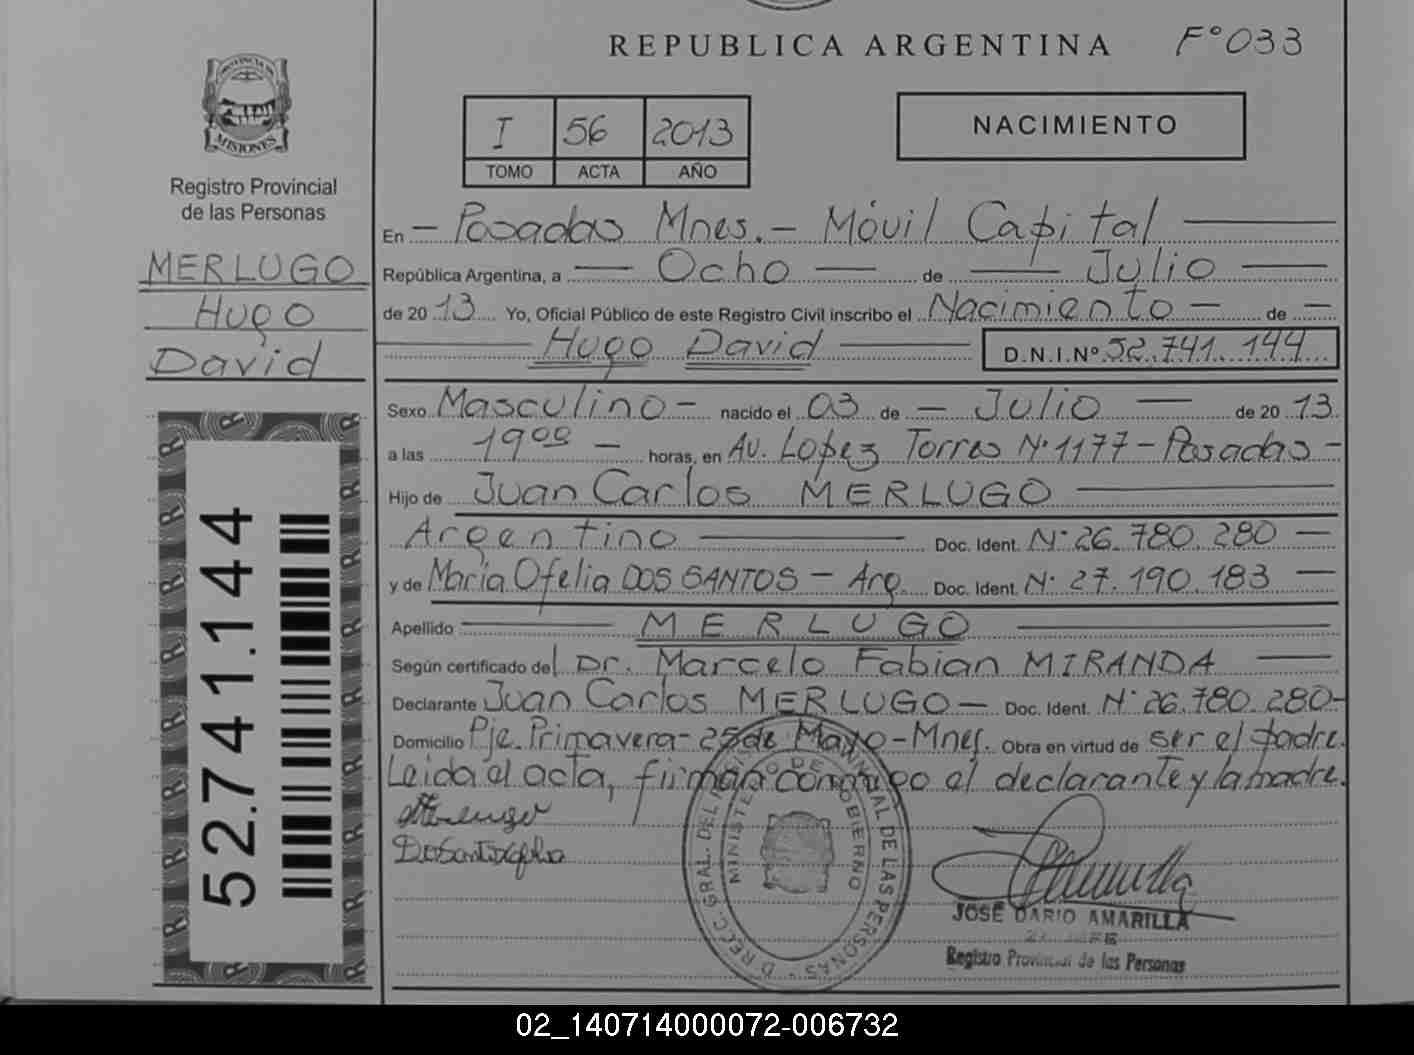 REPUBLICA ARGENTINA F° 033
PROVINCIA DE
MISIONES
Registro Provincial
de las Personas
MERLUGO
Hugo
David
52.741.144
I 56 2013
TOMO ACTA AÑO
NACIMIENTO
En - Posadas Mnes. - Móvil Capital
República Argentina, a Ocho de Julio
de 20 13 Yo, Oficial Público de este Registro Civil inscribo el Nacimiento - de -
Hugo David D.N.I.Nº 52.741.144
Sexo Masculino - nacido el 03 de - Julio - de 20 13
a las 19⁰⁰ - horas, en Av. Lopez Torres N° 1177 - Posadas -
Hijo de Juan Carlos MERLUGO
Argentino Doc. Ident. N° 26.780.280 -
y de María Ofelia DOS SANTOS - Arg. Doc. Ident. N° 27.190.183 -
Apellido MERLUGO
Según certificado del Dr. Marcelo Fabian MIRANDA
Declarante Juan Carlos MERLUGO - Doc. Ident. N° 26.780.280 -
Domicilio Pje. Primavera - 25 de Mayo - Mnes. Obra en virtud de ser el padre.
Leida el acta, firman conmigo el declarante y la madre.
MINISTERIO DE GOBIERNO
JOSÉ DARIO AMARILLA
Registro Provincial de las Personas
02_140714000072-006732